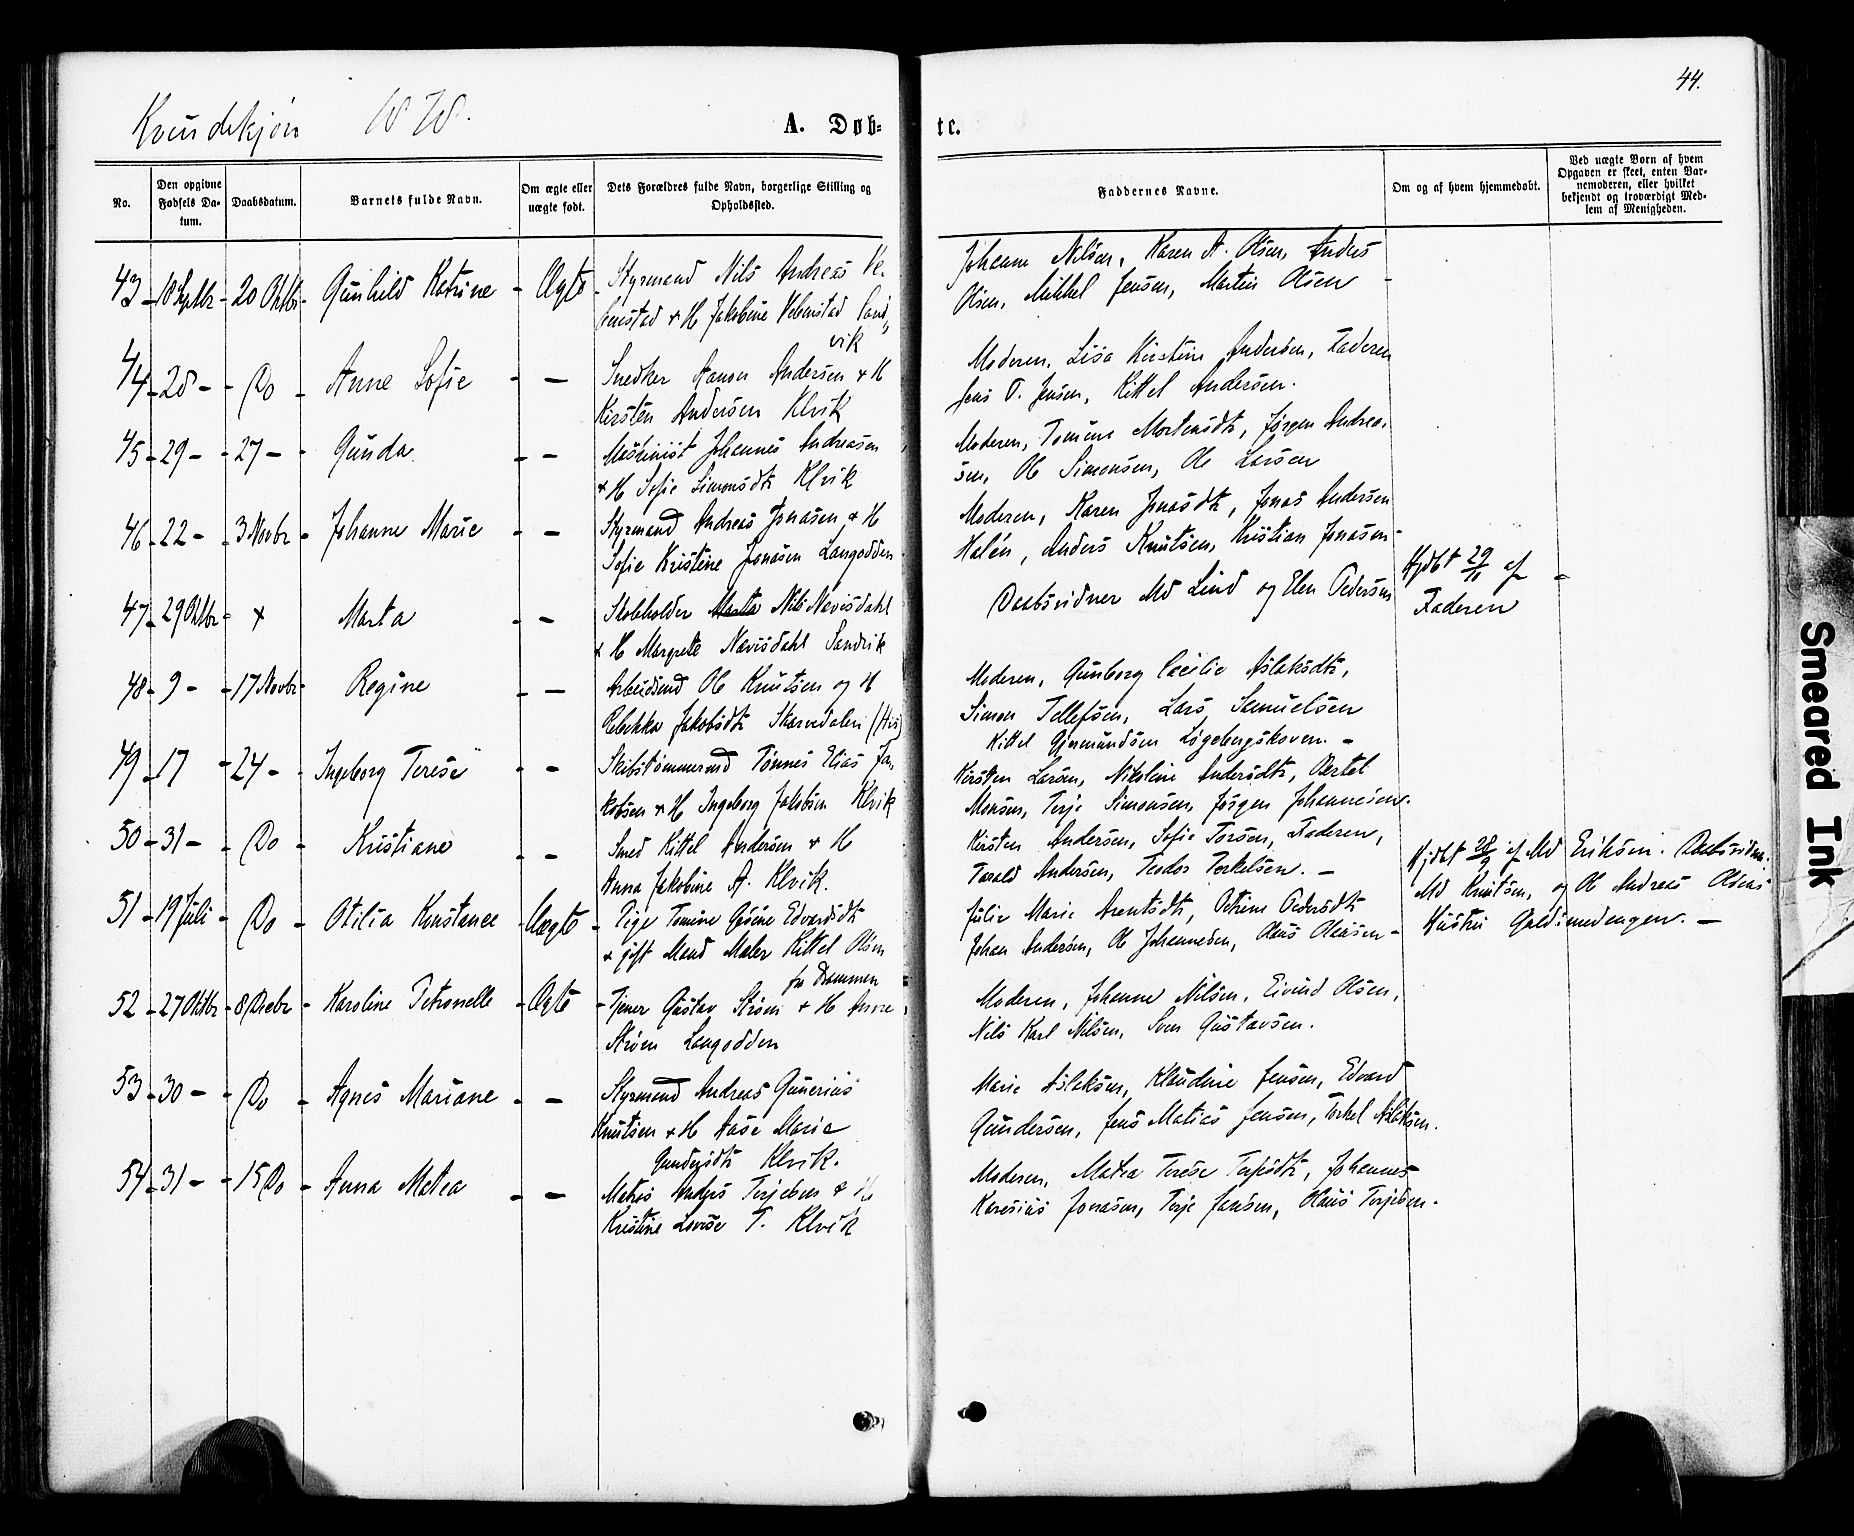 44.
Kvindekjøn
A. Døb- te.
No.
Den opgivne Fødsels Da- tum.
Daabsdatum.
Barnets fulde Navn.
Om ægte eller uægte født.
Dets Forældres fulde Navn, borgerlige Stilling og Opholdssted.
Faddernes Navne.
Om og af hvem hjemmedøbt.
Ved uægte Børn af hvem Opgaven er skeet, enten Bar- nemoderen, eller hvilket bekjendt og troværdigt Med- lem af Menigheden.
43 - 18 Septbr - 20 Oktbr - Gunhild Katrine - Ægte - Styrmand Nils Andreas Ve- Johanne Nilsen, Karen A. Olsen, Anders
& H Jakobine Sand„ Olsen, Mikkel Jensen, Martin Olsen -
vik
44 - 28 - - Do - Anne Sofie - - Snedker Aanon Andersen & H Moderen, Lisa Kirstine Andersen, Faderen
Kirsten Andersen Klvik Jens T. Jensen, Kittel Andersen.
45 - 29 - - 27 - - Gunda - - Maskinist Johannes Andreasen Moderen, Tomine Mortensdtr, Jørgen Andrea-
& H Sofie Simonsdtr Klvik sen, Ole Simonsen, Ole Larsen
46 - 22 - - 3 Novbr - Johanne Marie - - Styrmand Andreas Jonasen & H Moderen, Karen Jonasdtr, Jonas Andersen
Sofie Kristine Jonasen Langodden Halén, Anders Knutsen, Kristian Jonasen -
47 - 29 Oktbr - x Marta - - Skoleholder Marta Nils Nævisdahl Daabsvidner Md Lind og Elen Pedersen Hjdbt 29/11 af -
& H Margrete Nævisdahl Sandvik Faderen
48 - 9 - - 17 Novbr - Regine - - Arbeidsmd Ole Knutsen og H Moderen, Gunborg Cecilie Aslaksdtr,
Rebekka Jakobsdtr Skarvedalen (His) Simon Tellefsen, Lars Samuelsen
Kittel Gjermundsen Løgebergskoven. -
49 - 17 - 24 - - Ingeborg Terese - - Skibstømmermd Tønnes Elias Ja- Kirsten Larsen, Nikoline Andersdtr, Bertel
kobsen & H Ingeborg Jakobsen Klvik Monsen, Terje Simonsen, Jørgen Johannesen.
50 - 31 - - Do - Kristiane - - Smed Kittel Andersen & H Kirsten Andersen, Sofie Torsen, Faderen,
Anna Jakobine A. Klvik. Torald Andersen, Teodor Terkelsen. - Hjdbt 28/7 af Md Eriksen. Daabsvidn.
51 - 19 Juli - Do - Otilia Konstance - Uægte - Pige Tomine Gusine Edvardsdtr Julie Marie Arentsdtr, Petrine Pedersdtr Md Knutsen, og Ole Andreas Olsens
& gift Mand Maler Kittel Olsen Johan Andersen, Ole Johannesen, Olaus Olausen - Hustru Guldsmedengen. -
fra Drammen
52 - 27 Oktbr - 8 Decbr - Karoline Petronelle - Ægte - Tjener Gustav Strøm & H Anne Moderen, Johanne Nilsen, Eivind Olsen,
Strøm Langodden Nils Karl Nilsen, Sven Gustavsen.
53 - 30 - - Do - Agnes Mariane - - Styrmand Andreas Gunerius Marie Aslaksen, Klaudine Jensen, Edvard
Knutsen & H Aase Marie Gundersen, Jens Matias Jensen, Torkel Aslaksen.
Gundersdtr Klvik.
54 - 31 - - 15 Do - Anna Matea - - Matros Anders Terjesen & H Moderen, Matea Terese Terjesdtr, Johannes
Kristine Lovise T. Klvik Karesius Jonasen, Terje Jansen, Olaus Terjesen.
Smeared Ink